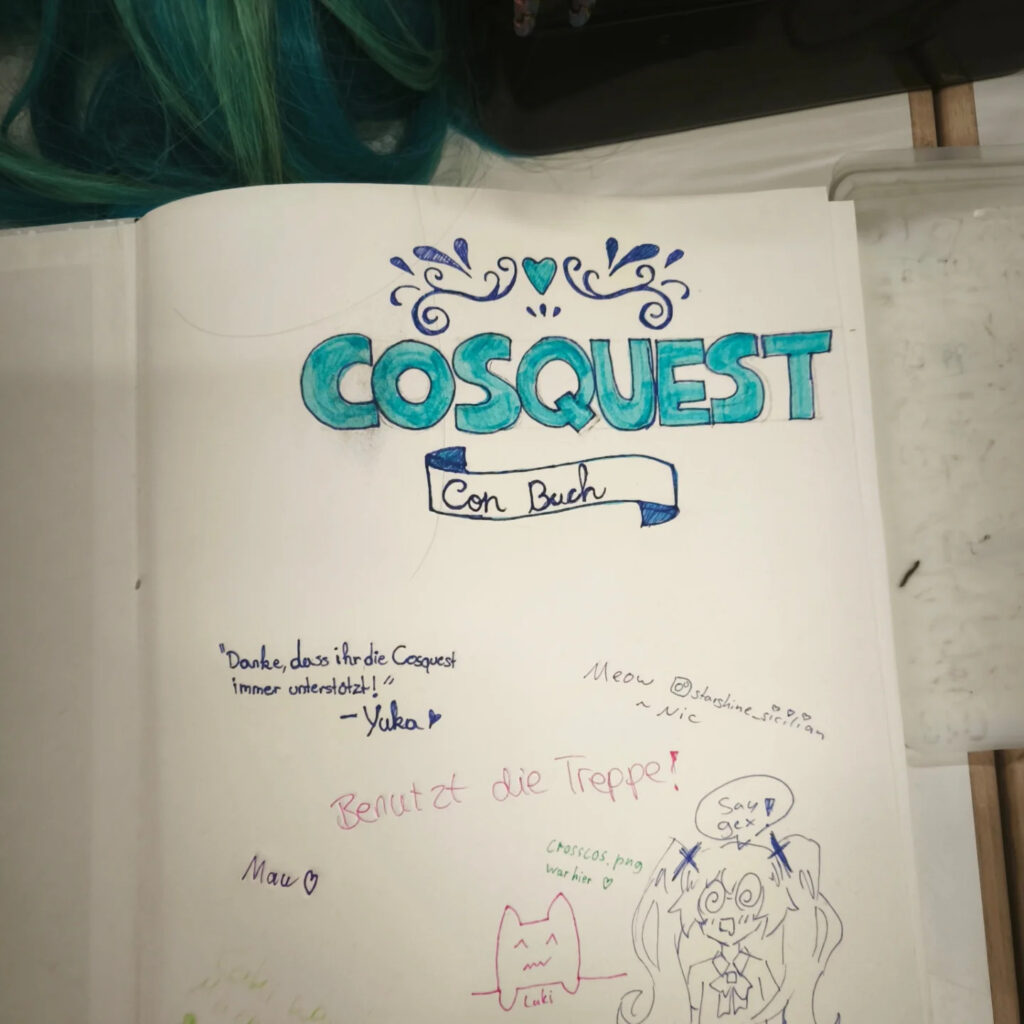 COSQUEST
Con Buch
"Danke, dass ihr die Cosquest
immer unterstützt!"
- Yuka
Meow @starshine_sicilian
~ Nic
Benutzt die Treppe!
Say
gex!
crosscos.png
war hier
Mau
Luki